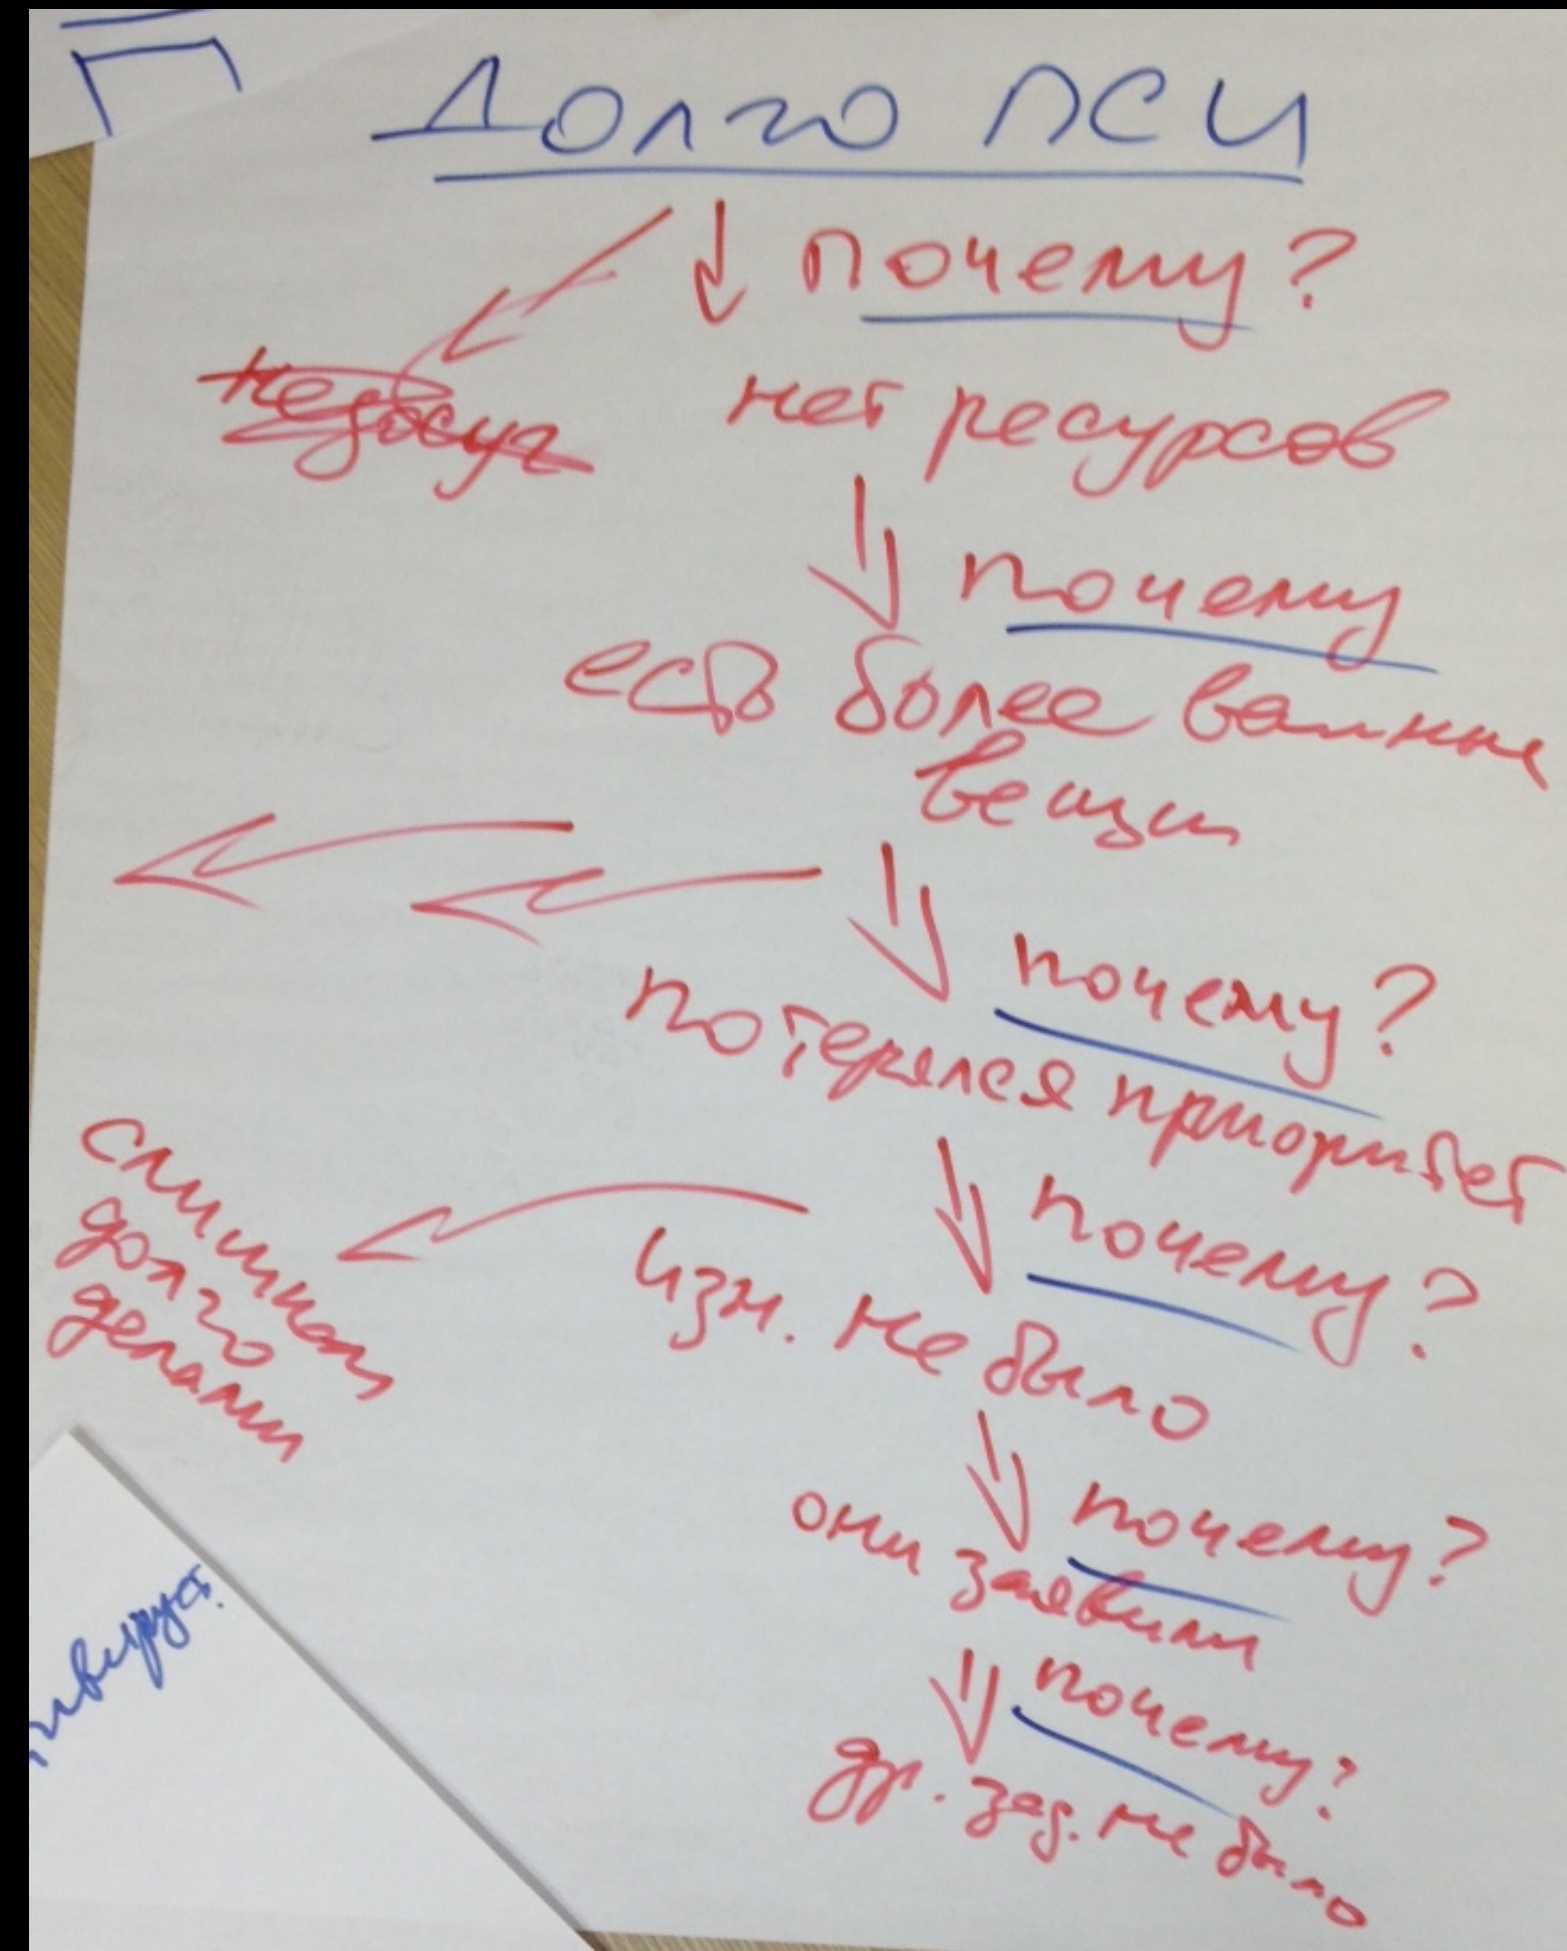 П
Долго ПСИ
почему?
недосуг
нет ресурсов
почему
есть более важные
вещи
почему?
потерялся приоритет
почему?
слишком
долго
делали
изн. не было
почему?
они заявили
почему?
др. зад. не было